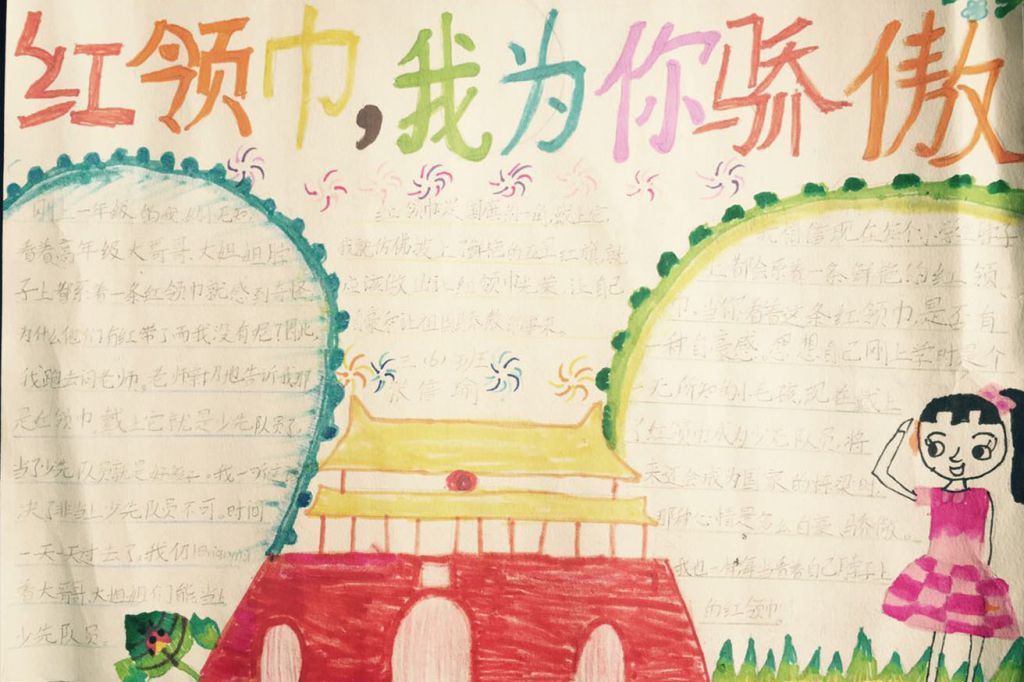 红领巾，我为你骄傲
刚上一年级的
看着高年级大哥哥、大姐姐脖
子上都系着一条红领巾就感到奇怪
为什么他们有红带子而我没有呢？因此
我跑去问老师。老师亲切地告诉我那
是红领巾戴上它就是少先队员了。
当了少先队员就是好孩子。我一听
决定非当上少先队员不可。时间
一天一天过去了，我仍
看大哥哥、大姐姐们能当上
少先队员。
红领巾是国旗的一角，戴上它，
我就仿佛披上了鲜艳的五星红旗，就
应该做出让红领巾光荣，让自己
自豪和让祖国骄傲的事来。
三（6）班
瑜
我相信现在每个小学生脖子
上都会系着一条鲜艳的红领
巾，当你看着这条红领巾，是否有
一种自豪感，思想自己刚上学时是个
一无所知的小毛孩，现在戴上
了红领巾成为少先队员，将
来还会成为国家的栋梁时，
那种心情是多么自豪、骄傲。
我也一样每当看着自己脖子上
的红领巾